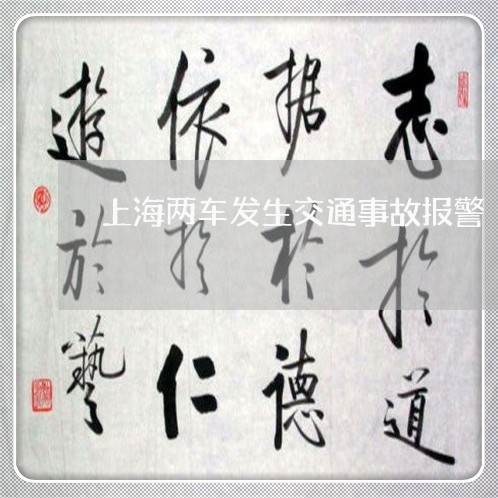 志於道
据於德
依於仁
遊於藝
上海两车发生交通事故报警